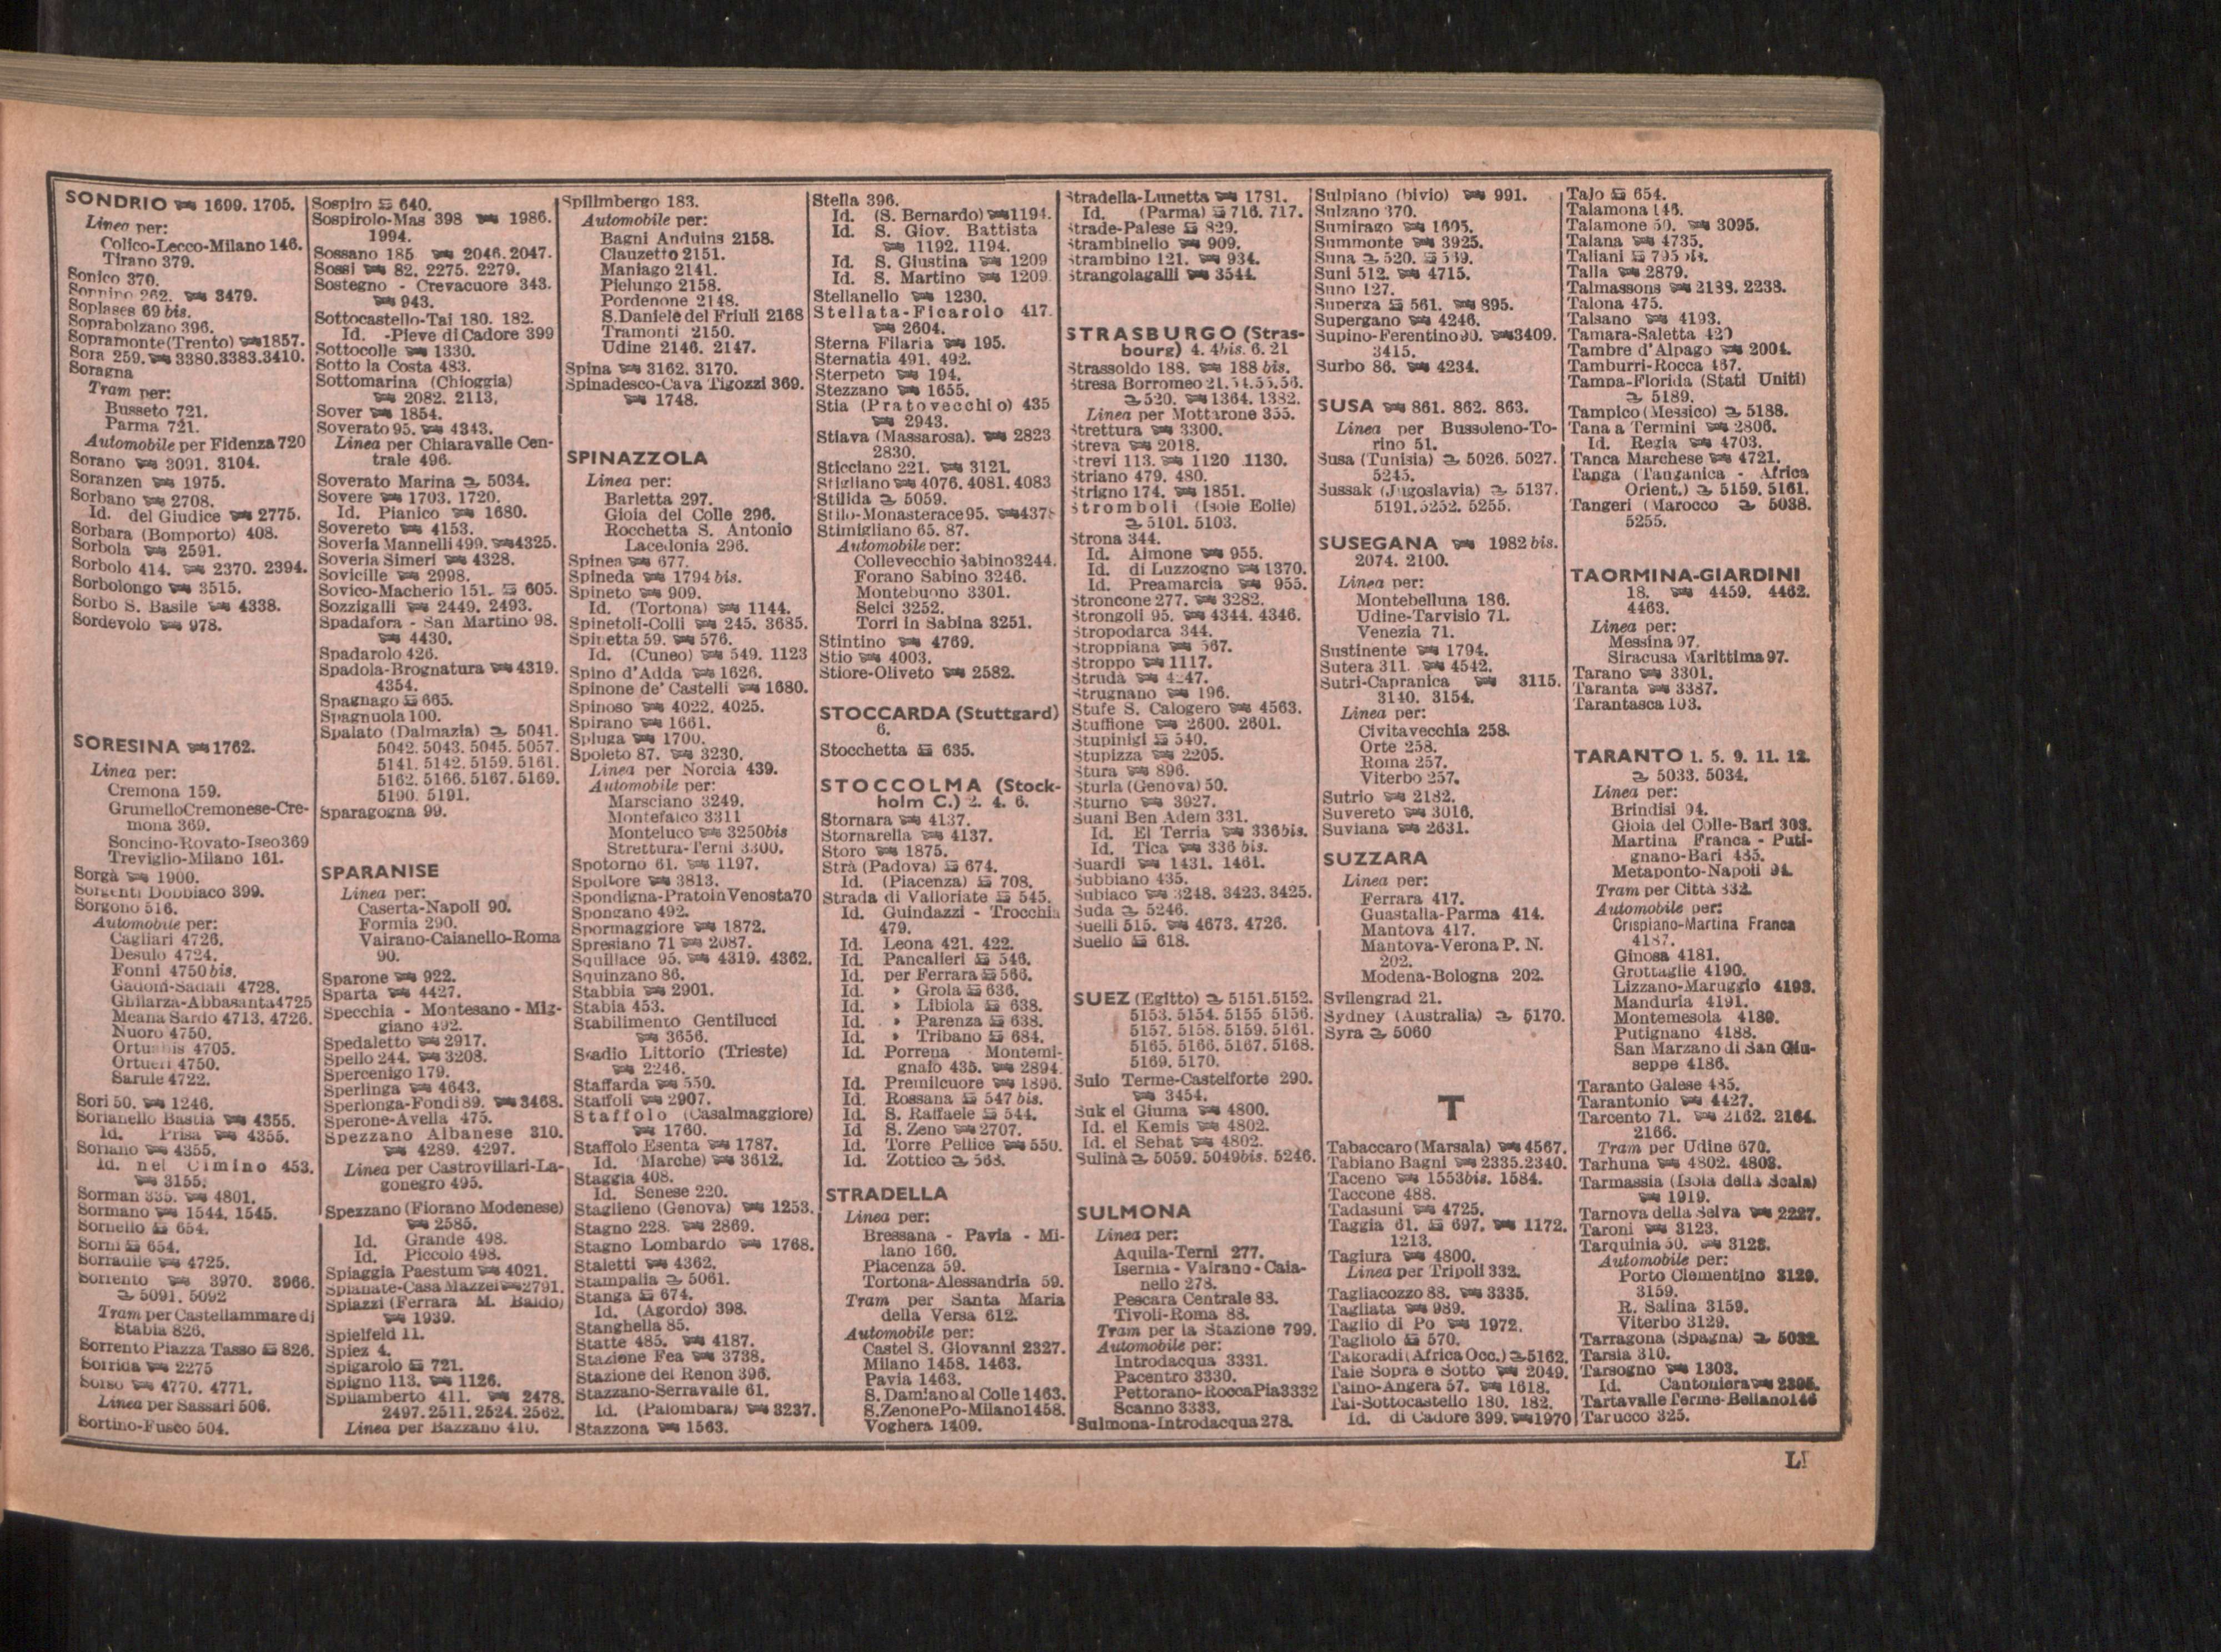 SONDRIO 1699. 1705.
Linea per:
Colico-Lecco-Milano 146.
Tirano 379.
Sonico 370.
Sonnino 262. 3479.
Soplases 69 bis.
Soprabolzano 396.
Sopramonte (Trento) 1857.
Sora 259. 3380. 3383. 3410.
Soragna
Tram per:
Busseto 721.
Parma 721.
Automobile per Fidenza 720
Sorano 3091. 3104.
Soranzen 1975.
Sorbano 2708.
Id. del Giudice 2775.
Sorbara (Bomporto) 408.
Sorbola 2591.
Sorbolo 414. 2370. 2394.
Sorbolongo 3515.
Sorbo S. Basile 4338.
Sordevolo 978.
SORESINA 1762.
Linea per:
Cremona 159.
Grumello Cremonese-Cre-
mona 369.
Soncino-Rovato-Iseo 369
Treviglio-Milano 161.
Sorgà 1900.
Sorgenti Dobbiaco 399.
Sorgono 516.
Automobile per:
Cagliari 4726.
Desulo 4724.
Fonni 4750 bis.
Gadoni-Sadali 4728.
Ghilarza-Abbasanta 4725
Meana Sardo 4713. 4726.
Nuoro 4750.
4705.
Ortueri 4750.
Sarule 4722.
Sori 50. 1246.
Sorianello Bastia 4355.
Id. Prisa 4355.
Soriano 4355.
Id. nel Cimino 453.
3155.
Sorman 335. 4801.
Sormano 1544. 1545.
Sornello 654.
Sorni 654.
Sorradile 4725.
Sorrento 3970. 3966.
5091. 5092
Tram per Castellammare di
Stabia 826.
Sorrento Piazza Tasso 826.
Sorrida 2275
Sorso 4770. 4771.
Linea per Sassari 506.
Sortino-Fusco 504.
Sospiro 640.
Sospirolo-Mas 398 1986.
1994.
Sossano 185 2046. 2047.
Sossi 82. 2275. 2279.
Sostegno - Crevacuore 343.
943.
Sottocastello-Tai 180. 182.
Id. -Pieve di Cadore 399
Sottocolle 1330.
Sotto la Costa 483.
Sottomarina (Chioggia)
2082. 2113.
Sover 1854.
Soverato 95. 4343.
Linea per Chiaravalle Cen-
trale 496.
Soverato Marina 5034.
Sovere 1703. 1720.
Id. Pianico 1680.
Sovereto 4153.
Soveria Mannelli 499. 4325.
Soveria Simeri 4328.
Sovicille 2998.
Sovico-Macherio 151. 605.
Sozzigalli 2449. 2493.
Spadafora - San Martino 98.
4430.
Spadarolo 426.
Spadola-Brognatura 4319.
4354.
Spagnago 665.
Spagnuola 100.
Spalato (Dalmazia) 5041.
5042. 5043. 5045. 5057.
5141. 5142. 5159. 5161.
5162. 5166. 5167. 5169.
5190. 5191.
Sparagogna 99.
SPARANISE
Linea per:
Caserta-Napoli 90.
Formia 290.
Vairano-Caianello-Roma
90.
Sparone 922.
Sparta 4427.
Specchia - Montesano - Mig-
giano 492.
Spedaletto 2917.
Spello 244. 3208.
Spercenigo 179.
Sperlinga 4643.
Sperlonga-Fondi 89. 3468.
Sperone-Avella 475.
Spezzano Albanese 310.
4289. 4297.
Linea per Castrovillari-La-
gonegro 495.
Spezzano (Fiorano Modenese)
2585.
Id. Grande 498.
Id. Piccolo 498.
Spiaggia Paestum 4021.
Spianate-Casa Mazzei 2791.
Spiazzi (Ferrara M. Baldo)
1939.
Spielfeld 11.
Spiez 4.
Spigarolo 721.
Spigno 113. 1126.
Spilamberto 411. 2478.
2497. 2511. 2524. 2562.
Linea per Bazzano 410.
Spilimbergo 183.
Automobile per:
Bagni Anduins 2158.
Clauzetto 2151.
Maniago 2141.
Pielungo 2158.
Pordenone 2148.
S. Daniele del Friuli 2168
Tramonti 2150.
Udine 2146. 2147.
Spina 3162. 3170.
Spinadesco-Cava Tigozzi 369.
1748.
SPINAZZOLA
Linea per:
Barletta 297.
Gioia del Colle 296.
Rocchetta S. Antonio
Lacedonia 296.
Spinea 677.
Spineda 1794 bis.
Spineto 909.
Id. (Tortona) 1144.
Spinetoli-Colli 245. 3685.
Spinetta 59. 576.
Id. (Cuneo) 549. 1123
Spino d'Adda 1626.
Spinone de' Castelli 1680.
Spinoso 4022. 4025.
Spirano 1661.
Spluga 1700.
Spoleto 87. 3230.
Linea per Norcia 439.
Automobile per:
Marsciano 3249.
Montefalco 3311
Monteluco 3250bis
Strettura-Terni 3300.
Spotorno 61. 1197.
Spoltore 3813.
Spondigna-Prato in Venosta 70
Spongano 492.
Spormaggiore 1872.
Spresiano 71 2087.
Squillace 95. 4319. 4362.
Squinzano 86.
Stabbia 2901.
Stabia 453.
Stabilimento Gentilucci
3656.
Stadio Littorio (Trieste)
2246.
Staffarda 550.
Staffoli 2907.
Staffolo (Casalmaggiore)
1760.
Staffolo Esenta 1787.
Id. (Marche) 3612.
Staggia 408.
Id. Senese 220.
Staglieno (Genova) 1253.
Stagno 228. 2869.
Stagno Lombardo 1768.
Staletti 4362.
Stampalia 5061.
Stanga 674.
Id. (Agordo) 398.
Stanghella 85.
Statte 485. 4187.
Stazione Fea 3738.
Stazione del Renon 396.
Stazzano-Serravalle 61.
Id. (Palombara) 3237.
Stazzona 1563.
Stella 396.
Id. (S. Bernardo) 1194.
Id. S. Giov. Battista
1192. 1194.
Id. S. Giustina 1209
Id. S. Martino 1209
Stellanello 1230.
Stellata-Ficarolo 417.
2604.
Sterna Filaria 195.
Sternatia 491. 492.
Sterpeto 194.
Stezzano 1655.
Stia (Pratovecchio) 435
2943.
Stiava (Massarosa). 2823
2830.
Sticciano 221. 3121.
Stigliano 4076. 4081. 4083
Stilida 5059.
Stilo-Monasterace 95.
Stimigliano 65. 87.
Automobile per:
Collevecchio Sabino 3244.
Forano Sabino 3246.
Montebuono 3301.
Selci 3252.
Torri in Sabina 3251.
Stintino 4769.
Stio 4003.
Stiore-Oliveto 2582.
STOCCARDA (Stuttgard)
6.
Stocchetta 635.
STOCCOLMA (Stock-
holm C.) 2. 4. 6.
Stornara 4137.
Stornarella 4137.
Storo 1875.
Strà (Padova) 674.
Id. (Piacenza) 708.
Strada di Valloriate 545.
Id. Guindazzi - Trocchia
479.
Id. Leona 421. 422.
Id. Pancalieri 546.
Id. per Ferrara 566.
Id. » Grola 636.
Id. » Libiola 638.
Id. » Parenza 638.
Id. » Tribano 684.
Id. Porrena - Montemi-
gnaio 435. 2894.
Id. Premilcuore 1896.
Id. Rossana 547 bis.
Id. S. Raffaele 544.
Id S. Zeno 2707.
Id. Torre Pellice 550.
Id. Zottico 568.
STRADELLA
Linea per:
Bressana - Pavia - Mi-
lano 160.
Piacenza 59.
Tortona-Alessandria 59.
Tram per Santa Maria
della Versa 612.
Automobile per:
Castel S. Giovanni 2327.
Milano 1458. 1463.
Pavia 1463.
S. Damiano al Colle 1463.
S. Zenone Po-Milano 1458.
Voghera 1409.
Stradella-Lunetta 1781.
Id. (Parma) 716. 717.
Strade-Palese 829.
Strambinello 909.
Strambino 121. 934.
Strangolagalli 3544.
STRASBURGO (Stras-
bourg) 4. 4bis. 6. 21
Strassoldo 188. 188 bis.
Stresa Borromeo 21. 54. 55. 56.
520. 1364. 1382.
Linea per Mottarone 355.
Strettura 3300.
Streva 2018.
Strevi 113. 1120 1130.
Striano 479. 480.
Strigno 174. 1851.
Stromboli (Isole Eolie)
5101. 5103.
Strona 344.
Id. Aimone 955.
Id. di Luzzogno 1370.
Id. Preamarcia 955.
Stroncone 277. 3282.
Strongoli 95. 4344. 4346.
Stropodarca 344.
Stroppiana 567.
Stroppo 1117.
Strudà 4247.
Strugnano 196.
Stufe S. Calogero 4563.
Stuffione 2600. 2601.
Stupinigi 540.
Stupizza 2205.
Stura 896.
Sturla (Genova) 50.
Sturno 3927.
Suani Ben Adem 331.
Id. El Terria 336bis.
Id. Tica 336 bis.
Suardi 1431. 1461.
Subbiano 435.
Subiaco 3248. 3423. 3425.
Suda 5246.
Suelli 515. 4673. 4726.
Suello 618.
SUEZ (Egitto) 5151. 5152.
5153. 5154. 5155 5156.
5157. 5158. 5159. 5161.
5165. 5166. 5167. 5168.
5169. 5170.
Suio Terme-Castelforte 290.
3454.
Suk el Giuma 4800.
Id. el Kemis 4802.
Id. el Sebat 4802.
Sulinà 5059. 5049bis. 5246.
SULMONA
Linea per:
Aquila-Terni 277.
Isernia - Vairano - Caia-
nello 278.
Pescara Centrale 88.
Tivoli-Roma 88.
Tram per la Stazione 799.
Automobile per:
Introdacqua 3331.
Pacentro 3330.
Pettorano-RoccaPia 3332
Scanno 3333.
Sulmona-Introdacqua 278.
Sulpiano (bivio) 991.
Sulzano 370.
Sumirago 1605.
Summonte 3925.
Suna 520. 539.
Suni 512. 4715.
Suno 127.
Superga 561. 895.
Supergano 4246.
Supino-Ferentino 90. 3409.
3415.
Surbo 86. 4234.
SUSA 861. 862. 863.
Linea per Bussoleno-To-
rino 51.
Susa (Tunisia) 5026. 5027.
5245.
Sussak (Jugoslavia) 5137.
5191. 5252. 5255.
SUSEGANA 1982 bis.
2074. 2100.
Linea per:
Montebelluna 186.
Udine-Tarvisio 71.
Venezia 71.
Sustinente 1794.
Sutera 311. 4542.
Sutri-Capranica 3115.
3140. 3154.
Linea per:
Civitavecchia 258.
Orte 258.
Roma 257.
Viterbo 257.
Sutrio 2182.
Suvereto 3016.
Suviana 2631.
SUZZARA
Linea per:
Ferrara 417.
Guastalla-Parma 414.
Mantova 417.
Mantova-Verona P. N.
202.
Modena-Bologna 202.
Svilengrad 21.
Sydney (Australia) 5170.
Syra 5060
T
Tabaccaro (Marsala) 4567.
Tabiano Bagni 2335. 2340.
Taceno 1553bis. 1584.
Taccone 488.
Tadasuni 4725.
Taggia 61. 697. 1172.
1213.
Tagiura 4800.
Linea per Tripoli 332.
Tagliacozzo 88. 3335.
Tagliata 989.
Taglio di Po 1972.
Tagliolo 570.
Takoradi (Africa Occ.) 5162.
Taie Sopra e Sotto 2049.
Taino-Angera 57. 1618.
Tai-Sottocastello 180. 182.
Id. di Cadore 399. 1970
Tajo 654.
Talamona 146.
Talamone 50. 3095.
Talana 4735.
Taliani 795 bis.
Talla 2879.
Talmassons 2183. 2238.
Talona 475.
Talsano 4193.
Tamara-Saletta 420
Tambre d'Alpago 2004.
Tamburri-Rocca 487.
Tampa-Florida (Stati Uniti)
5189.
Tampico (Messico) 5188.
Tana a Termini 2806.
Id. Regia 4703.
Tanca Marchese 4721.
Tanga (Tanganica - Africa
Orient.) 5159. 5161.
Tangeri (Marocco 5038.
5255.
TAORMINA-GIARDINI
18. 4459. 4462.
4463.
Linea per:
Messina 97.
Siracusa Marittima 97.
Tarano 3301.
Taranta 3387.
Tarantasca 103.
TARANTO 1. 5. 9. 11. 12.
5033. 5034.
Linea per:
Brindisi 94.
Gioia del Colle-Bari 303.
Martina Franca - Puti-
gnano-Bari 485.
Metaponto-Napoli 94.
Tram per Città 832.
Automobile per:
Crispiano-Martina Franca
4187.
Ginosa 4181.
Grottaglie 4190.
Lizzano-Maruggio 4193.
Manduria 4191.
Montemesola 4189.
Putignano 4188.
San Marzano di San Giu-
seppe 4186.
Taranto Galese 485.
Tarantonio 4427.
Tarcento 71. 2162. 2164.
2166.
Tram per Udine 670.
Tarhuna 4802. 4803.
Tarmassia (Isola della Scala)
1919.
Tarnova della Selva 2227.
Taroni 3123.
Tarquinia 50. 3128.
Automobile per:
Porto Clementino 3129.
3159.
R. Salina 3159.
Viterbo 3129.
Tarragona (Spagna) 5032.
Tarsia 310.
Tarsogno 1303.
Id. Cantoniera 2395.
Tartavalle Terme-Bellano 146
Tarucco 325.
LI